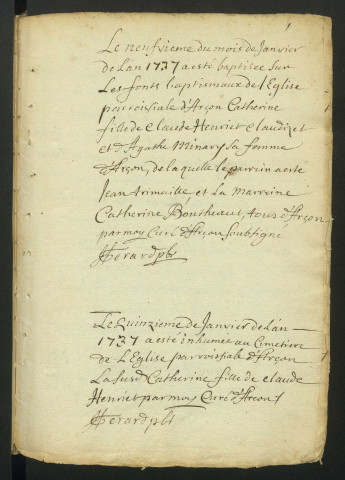 Le neufvieme du mois de Janvier
de L'an 1737 a esté baptisée sur
Les fonts baptismaux de l'Eglise
parroissiale d'Arçon Catherine
fille de Claude Henriet Claudizet
et d'Agathe Minary sa femme
d'Arçon, de laquelle le parrein a esté
Jean trimaille et La Marreine
Catherine tous d'Arçon
par moy Curé d'Arçon Soubsigné
Herard pbr
Le Quinzieme de Janvier de L'an
1737 a esté inhumée au Cimetiere
de L'Eglise parroissiale d'Arçon
La susd Catherine fille de Claude
Henriet par moy Curé d'Arçon
Herard pbr